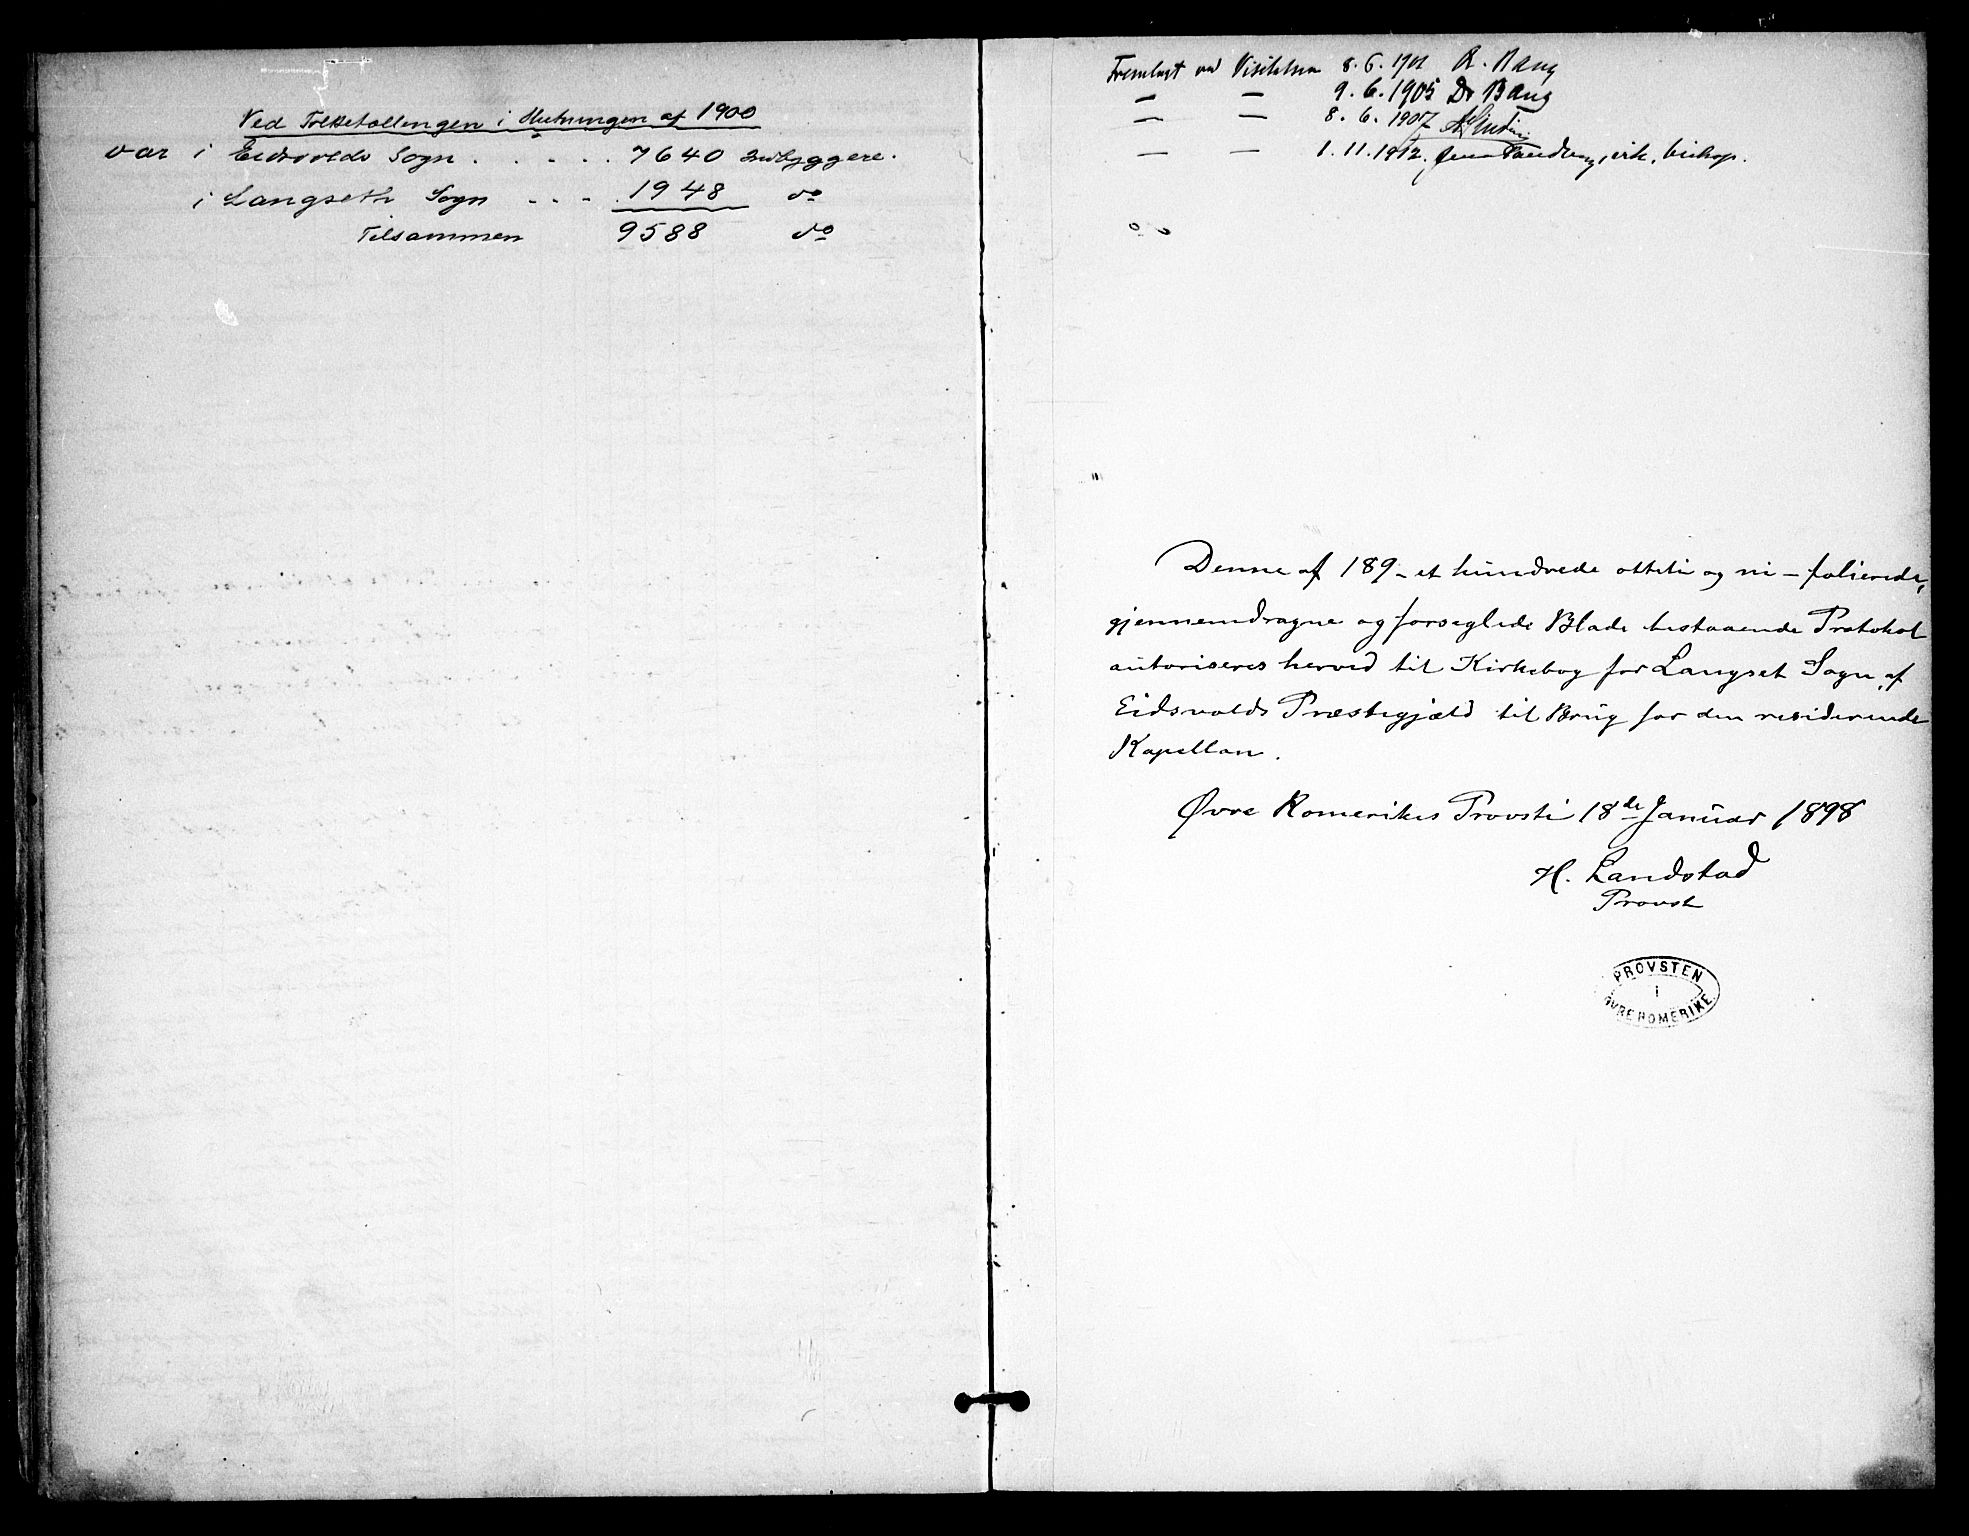 Ved Folketællengen i Slutningen af 1900
var i Eidsvolds Sogn . . . . . 7640 Indbyggere.
i Langseth Sogn - - - . 1948 do
Tilsammen 9588 do
Fremlagt ved Visitatsen 8.6.1901 A. Bang
— — 9.6.1905 Dr Bang
— — 8.6.1907
— — 1.11.1912. Jens Tandberg, bishop.
Denne af 189 - et hundrede otteti og ni - folierede,
gjennemdragne og forseglede Blade bestaaende Protokol
autoriseres herved til Kirkebog for Langset Sogn af
Eidsvolds Præstegjæld til Brug for den residerende
Kapellan.
Øvre Romerikes Provsti 18de Januar 1898
H. Landstad
Provst
PROVSTEN
i
ØVRE ROMERIKE